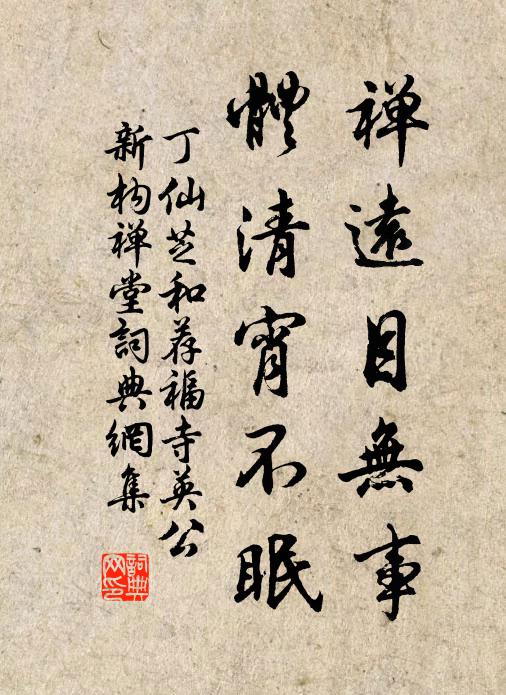 禅遠目無事
體清宵不眠
丁仙芝和荐福寺英公
新构禅堂詞典網集
詞典
网印